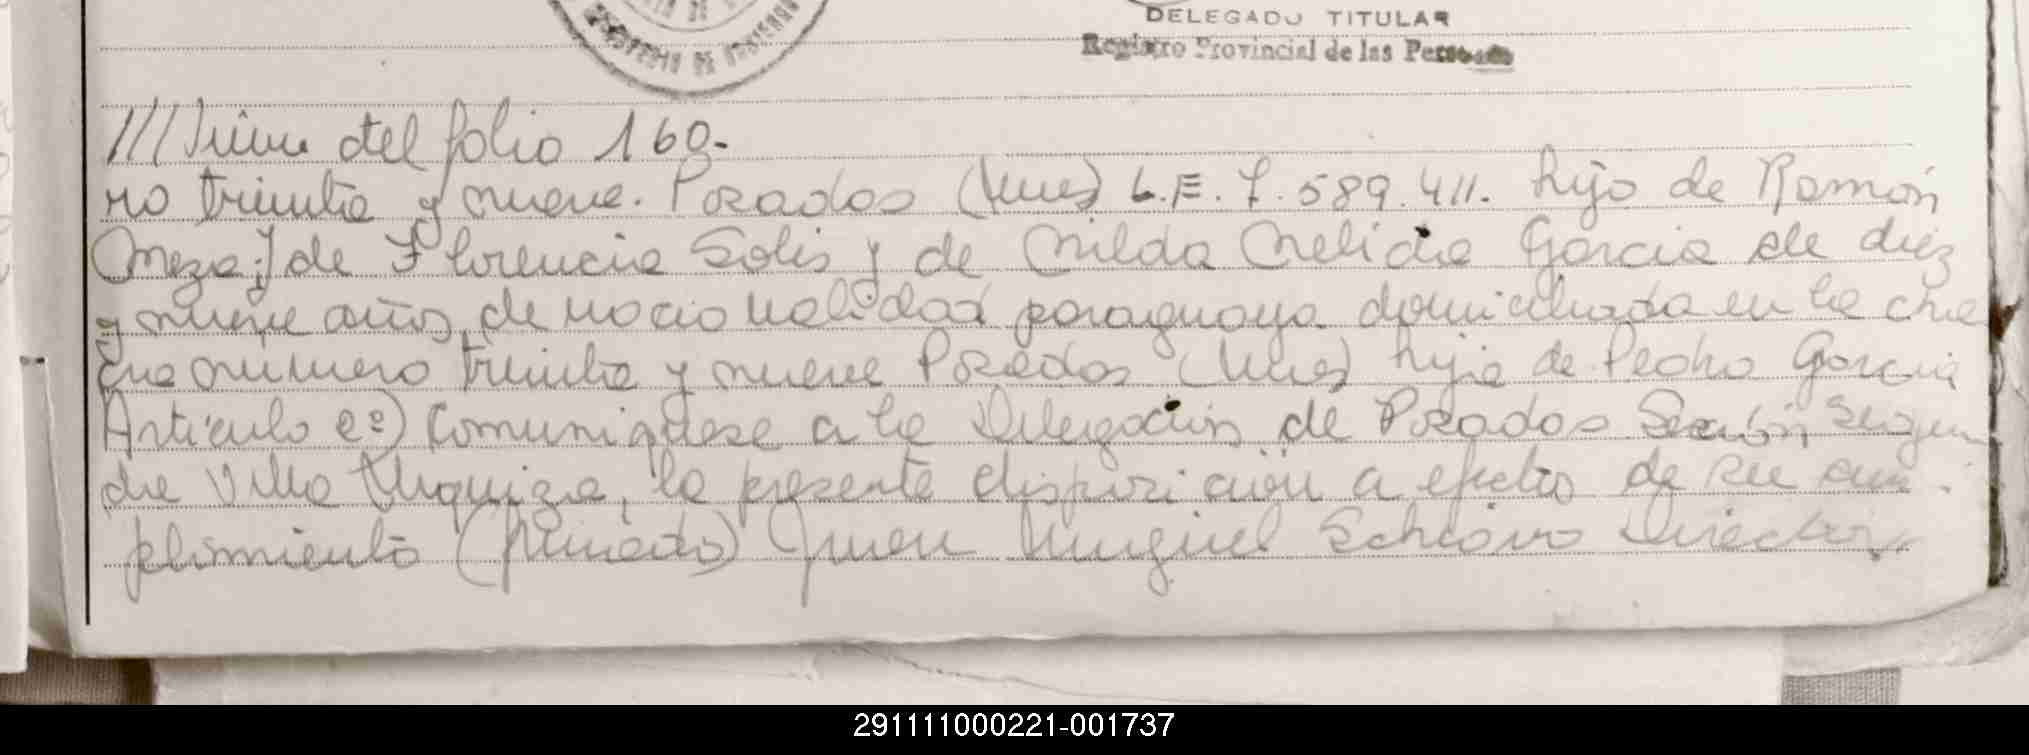 DELEGADO TITULAR
Registro Provincial de las Personas
///Viene del folio 160.-
ro treinta y nueve. Posadas (Mnes) L.E. 7.589.411. hijo de Ramón
Meza y de Florencia Solis y de Nilda Nelida Garcia de diez
y nueve años, de nacionalidad paraguaya domiciliada en la cha
cra número treinta y nueve Posadas (Mnes) hija de Pedro Garcia
Artículo 2º) Comuníquese a la Delegación de Posadas Sección Segun
da Villa Urquiza, la presente disposición a efectos de su cum
plimiento (firmado) Juan Miguel Schiavo Director
291111000221-001737